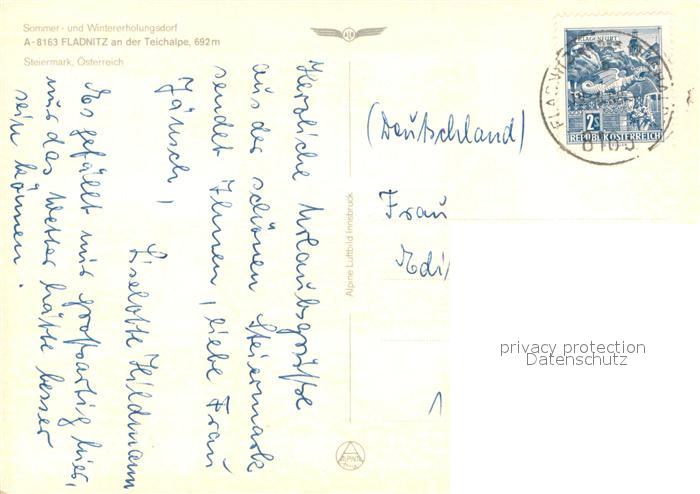 Sommer- und Wintererholungsdorf
A-8163 FLADNITZ an der Teichalpe, 692 m
Steiermark, Österreich
Herzliche Urlaubsgrüße
aus der schönen Steiermark
sendet Ihnen, liebe Frau
Jänsch,
Liselotte Hildmann
Es gefällt mir großartig hier,
nur das Wetter hätte besser
sein können.
Alpine Luftbild Innsbruck
ALPINE
(Deutschland)
Frau
Edi
1
KLAGENFURT
2 S
REPUBLIK ÖSTERREICH
FLADNITZ
8163
privacy protection
Datenschutz